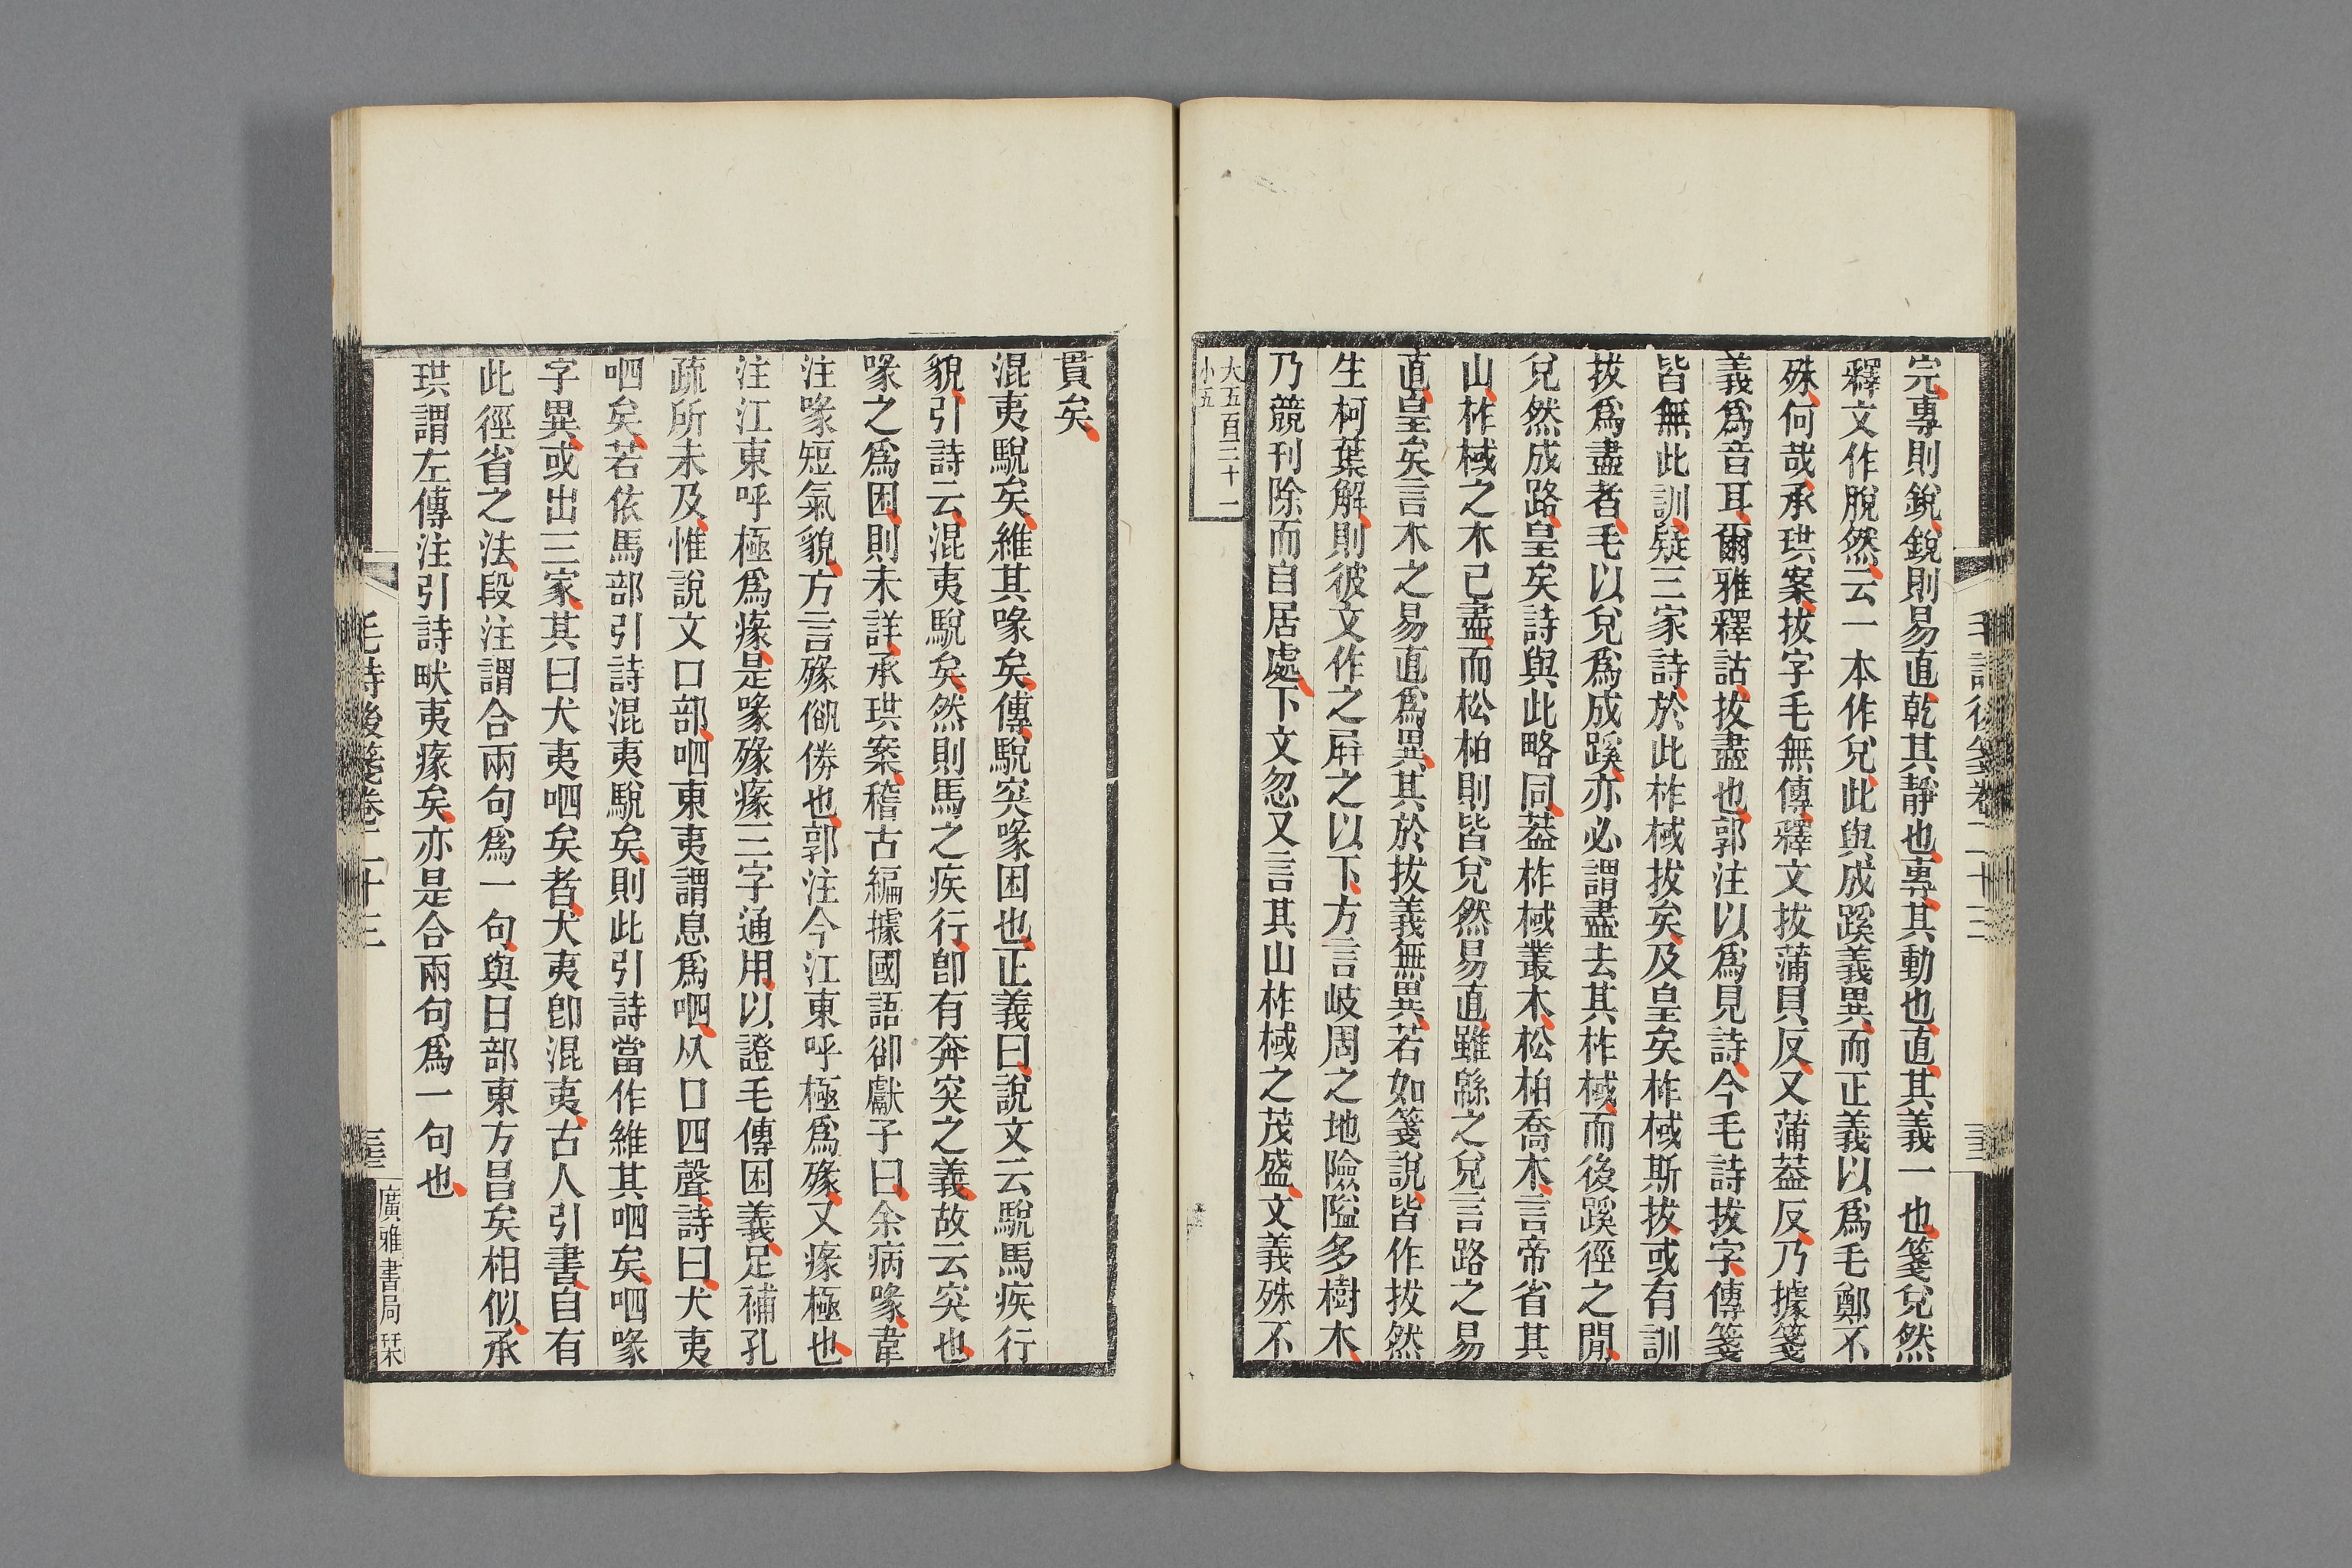 完專則銳銳則易直乾其靜也專其動也直其義一也箋兌然
釋文作脫然云一本作兌此與成蹊義異而正義以爲毛鄭不
殊何哉承珙案拔字毛無傳釋文拔蒲貝反又蒲葢反乃據箋
義爲音耳爾雅釋詁拔盡也郭注以爲見詩今毛詩拔字傳箋
皆無此訓疑三家詩於此柞棫拔矣及皇矣柞棫斯拔或有訓
拔爲盡者毛以兌爲成蹊亦必謂盡去其柞棫而後蹊徑之閒
兌然成路皇矣詩與此略同葢柞棫叢木松柏喬木言帝省其
山柞棫之木已盡而松柏則皆兌然易直雖緜之兌言路之易
直皇矣言木之易直爲異其於拔義無異若如箋說皆作拔然
生柯葉解則彼文作之屛之以下方言岐周之地險隘多樹木
乃競刊除而自居處下文忽又言其山柞棫之茂盛文義殊不
大五百二十一
小五
毛詩後箋卷二十三
貫矣
混夷駾矣維其喙矣傳駾突喙困也正義曰說文云駾馬疾行
貌引詩云混夷駾矣然則馬之疾行卽有奔突之義故云突也
喙之爲困則未詳承珙案稽古編據國語卻獻子曰余病喙韋
注喙短氣貌方言㱵㑜傍也郭注今江東呼極爲㱵又瘃極也
注江東呼極爲瘃是喙㱵瘃三字通用以證毛傳困義足補孔
疏所未及惟說文口部呬東夷謂息爲呬从口四聲詩曰犬夷
呬矣若依馬部引詩混夷駾矣則此引詩當作維其呬矣呬喙
字異或出三家其曰犬夷呬矣者犬夷卽混夷古人引書自有
此徑省之法段注謂合兩句爲一句與日部東方昌矣相似承
珙謂左傳注引詩畎夷瘃矣亦是合兩句爲一句也
毛詩後箋卷二十三
廣雅書局栞